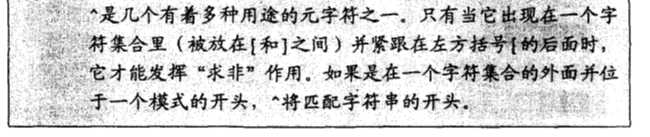 ^是几个有着多种用途的元字符之一。只有当它出现在一个字
符集合里（被放在[和]之间）并紧跟在左方括号[的后面时，
它才能发挥“求非”作用。如果是在一个字符集合的外面并位
于一个模式的开头，^将匹配字符串的开头。